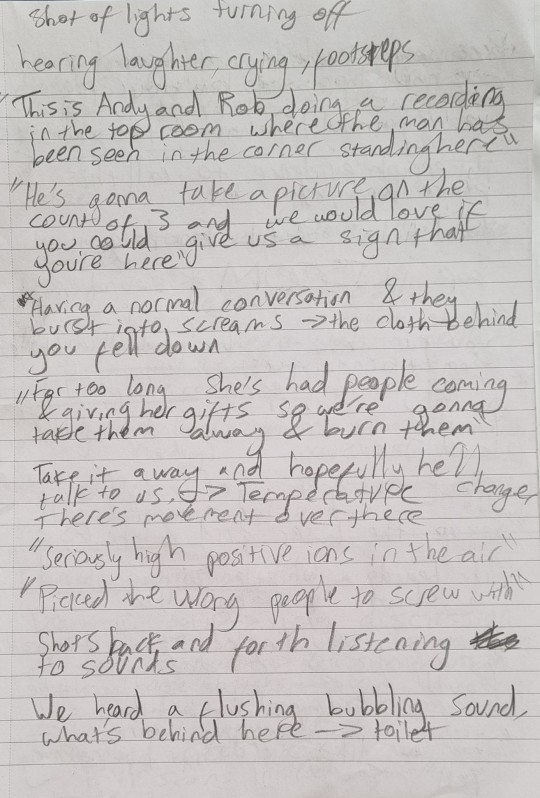 Shot of lights turning off
hearing laughter, crying, footsteps
"This is Andy and Rob doing a recording
in the top room where the man has
been seen in the corner standing here"
"He's gonna take a picture on the
count of 3 and we would love if
you could give us a sign that
you're here"
Having a normal conversation & they
burst into screams → the cloth behind
you fell down
"Far too long she's had people coming
& giving her gifts so we're gonna
take them away & burn them"
Take it away and hopefully he'll
talk to us. → Temperature changer
There's movement over there
"Seriously high positive ions in the air"
"Picked the wrong people to screw with"
Shots back and forth listening
to sounds
We heard a flushing bubbling sound,
what's behind here → toilet